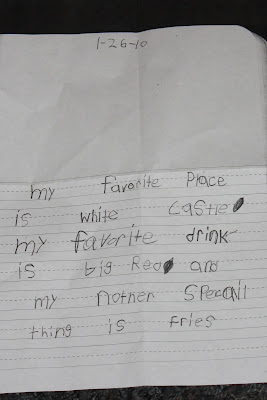 1-26-10
my favorite Place
is white Castle
my favorite drink
is big Red and
my nother Specail
thing is fries